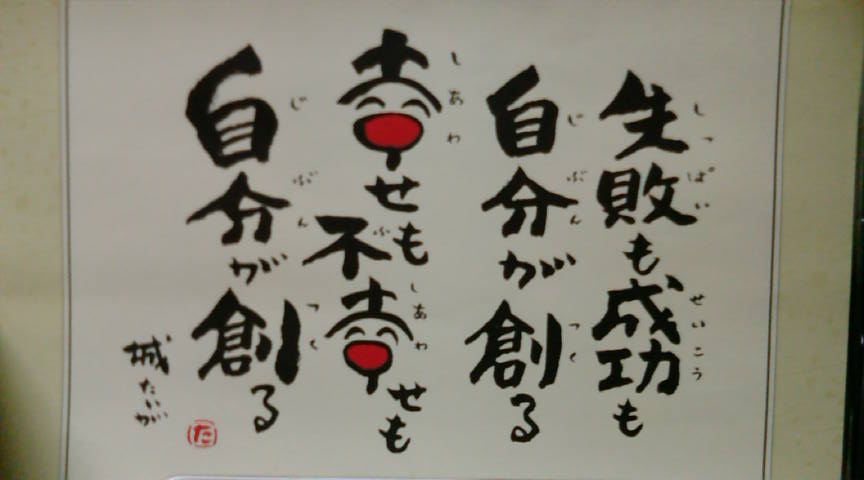 失敗も成功も
自分が創る
幸せも不幸せも
自分が創る
城たいが
た